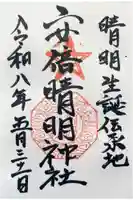 晴明生誕伝承地
安倍晴明神社
令和八年五月三十一日